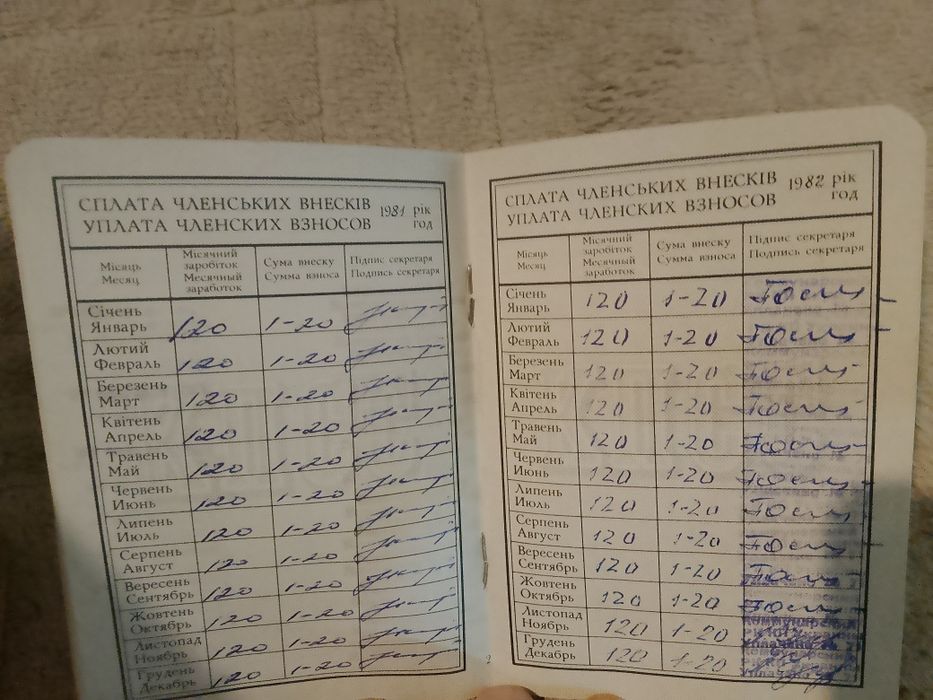 СПЛАТА ЧЛЕНСЬКИХ ВНЕСКІВ 1981 рік
УПЛАТА ЧЛЕНСКИХ ВЗНОСОВ год
Місяць
Месяц
Місячний
заробіток
Месячный
заработок
Сума внеску
Сумма взноса
Підпис секретаря
Подпись секретаря
Січень
Январь 120 1-20
Лютий
Февраль 120 1-20
Березень
Март 120 1-20
Квітень
Апрель 120 1-20
Травень
Май 120 1-20
Червень
Июнь 120 1-20
Липень
Июль 120 1-20
Серпень
Август 120 1-20
Вересень
Сентябрь 120 1-20
Жовтень
Октябрь 120 1-20
Листопад
Ноябрь 120 1-20
Грудень
Декабрь 120 1-20
СПЛАТА ЧЛЕНСЬКИХ ВНЕСКІВ 1982 рік
УПЛАТА ЧЛЕНСКИХ ВЗНОСОВ год
Місяць
Месяц
Місячний
заробіток
Месячный
заработок
Сума внеску
Сумма взноса
Підпис секретаря
Подпись секретаря
Січень
Январь 120 1-20
Лютий
Февраль 120 1-20
Березень
Март 120 1-20
Квітень
Апрель 120 1-20
Травень
Май 120 1-20
Червень
Июнь 120 1-20
Липень
Июль 120 1-20
Серпень
Август 120 1-20
Вересень
Сентябрь 120 1-20
Жовтень
Октябрь 120 1-20
Листопад
Ноябрь 120 1-20
Грудень
Декабрь 120 1-20
2